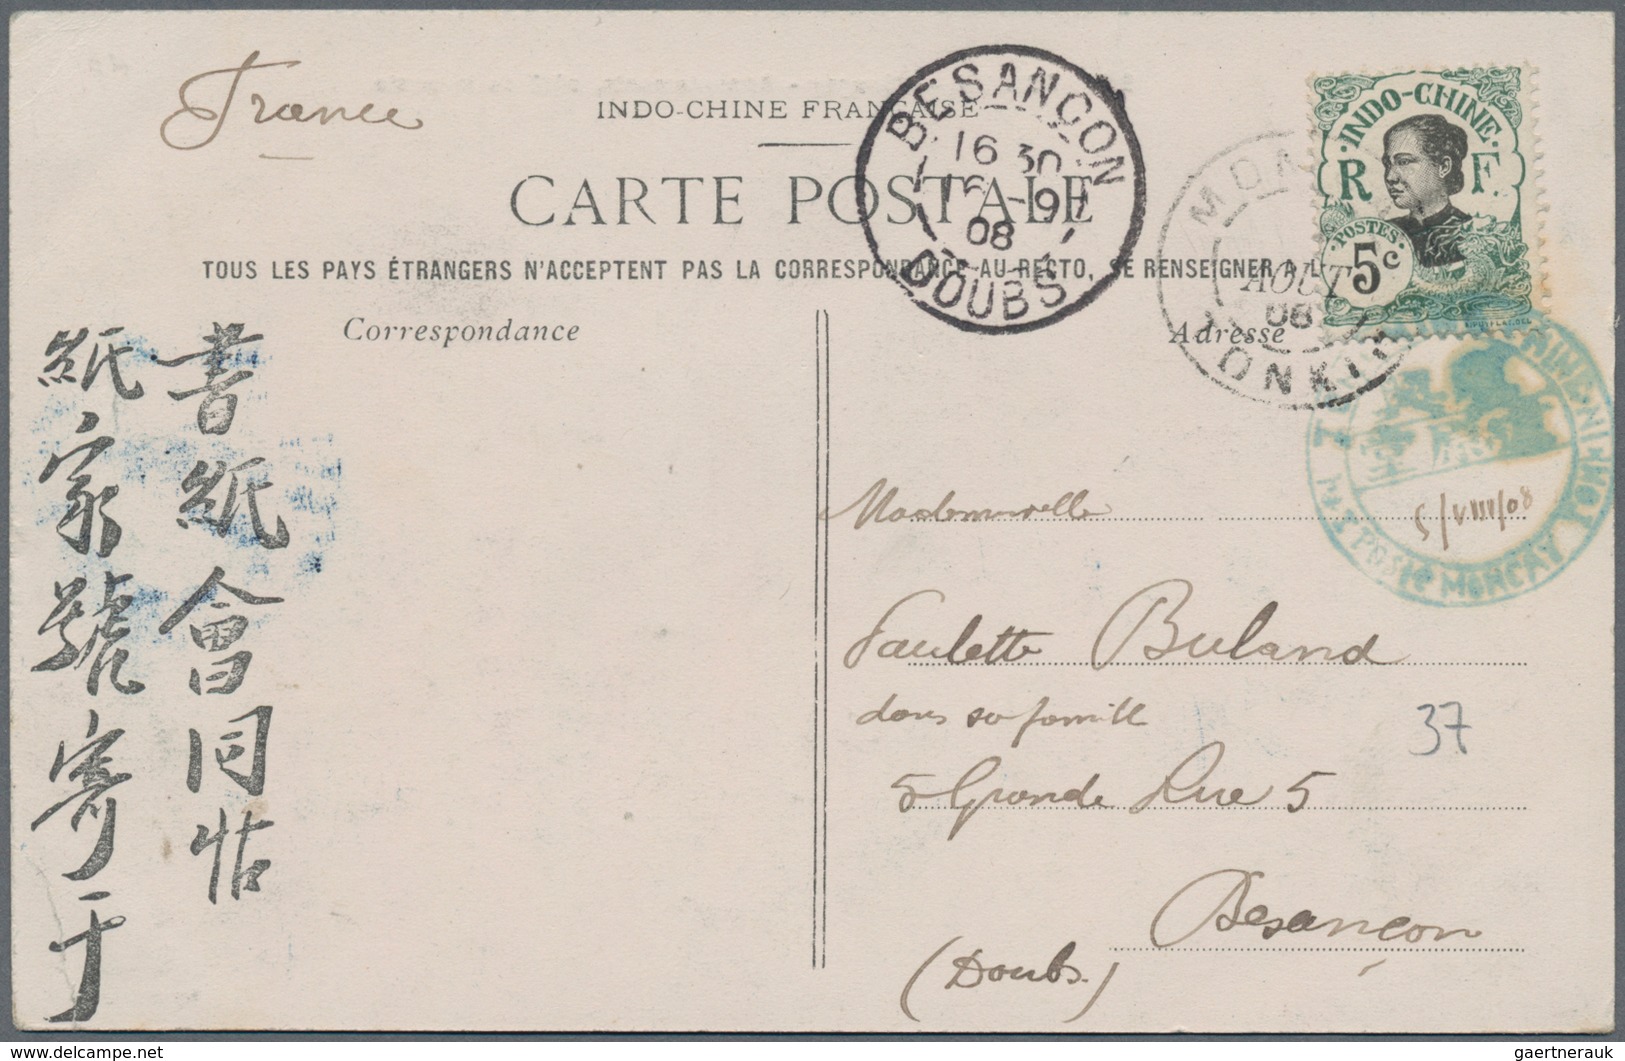 France
INDO-CHINE FRANÇAISE
CARTE POSTALE
TOUS LES PAYS ÉTRANGERS N'ACCEPTENT PAS LA CORRESPONDANCE AU RECTO, SE RENSEIGNER A L
Correspondance
Adresse
BESANÇON
16 30
16 -9
08
DOUBS
INDO-CHINE
R F
POSTES
5c
MON
AOUT
08
TONKIN
POSTE MONCAY
5/VIII/08
書紙會同帖
紙家號寄于
Mademoiselle
Paulette Buland
dans sa famille
5 Grande Rue 5
Besançon
(Doubs)
37
gaertnerauk